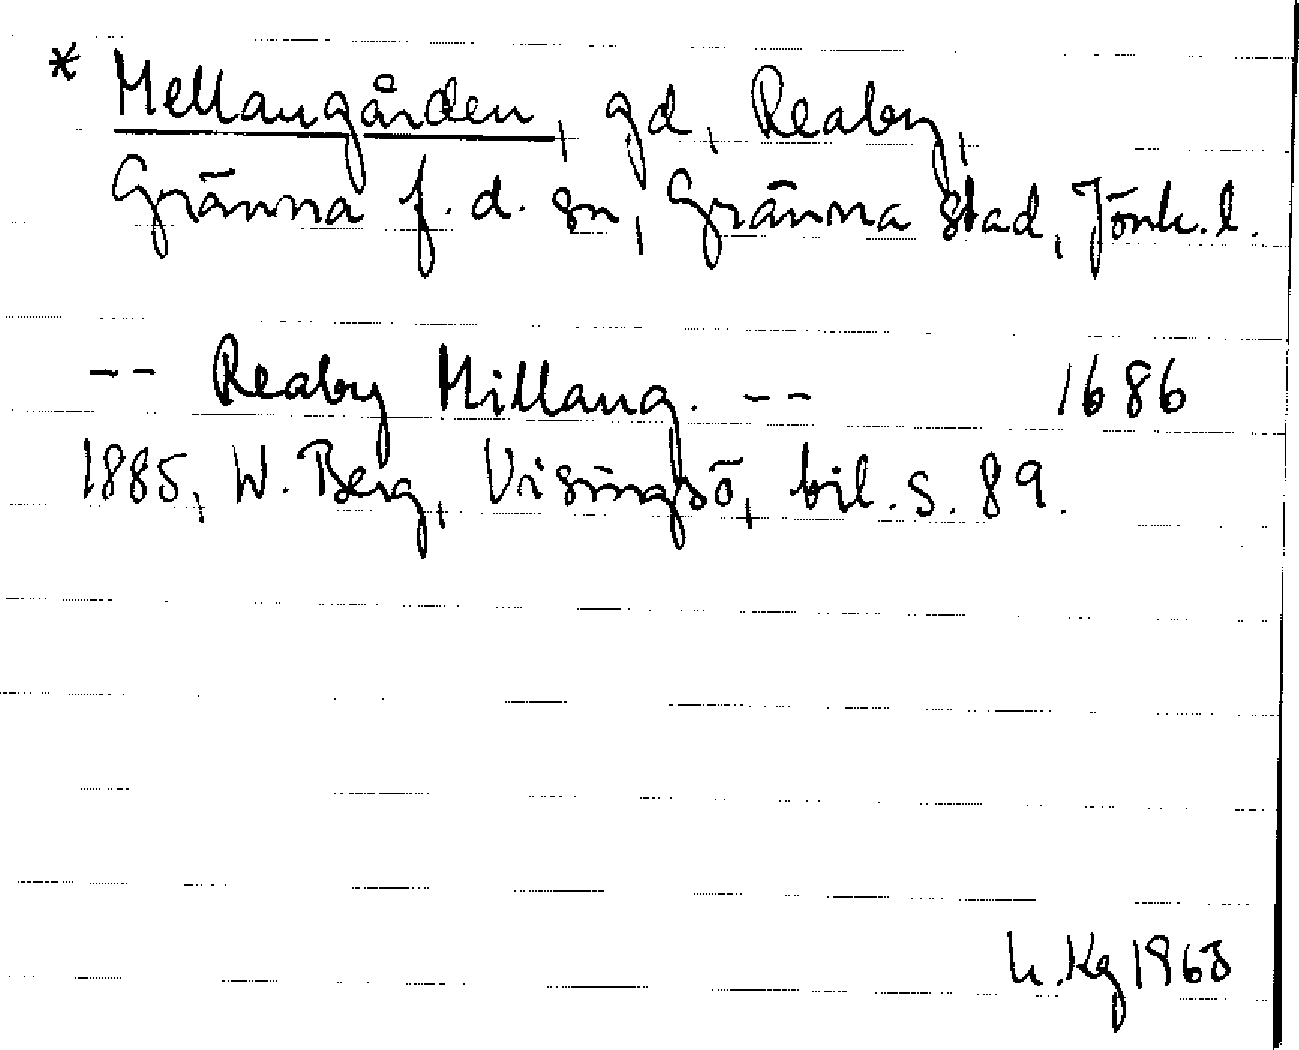 * Mellangården, gd, Reaby,
Gränna f.d. sn, Gränna stad, Jönk.l.
-- Reaby Millang. -- 1686
1885, W. Berg, Visingsö, bil. s. 89.
h. Kg 1968